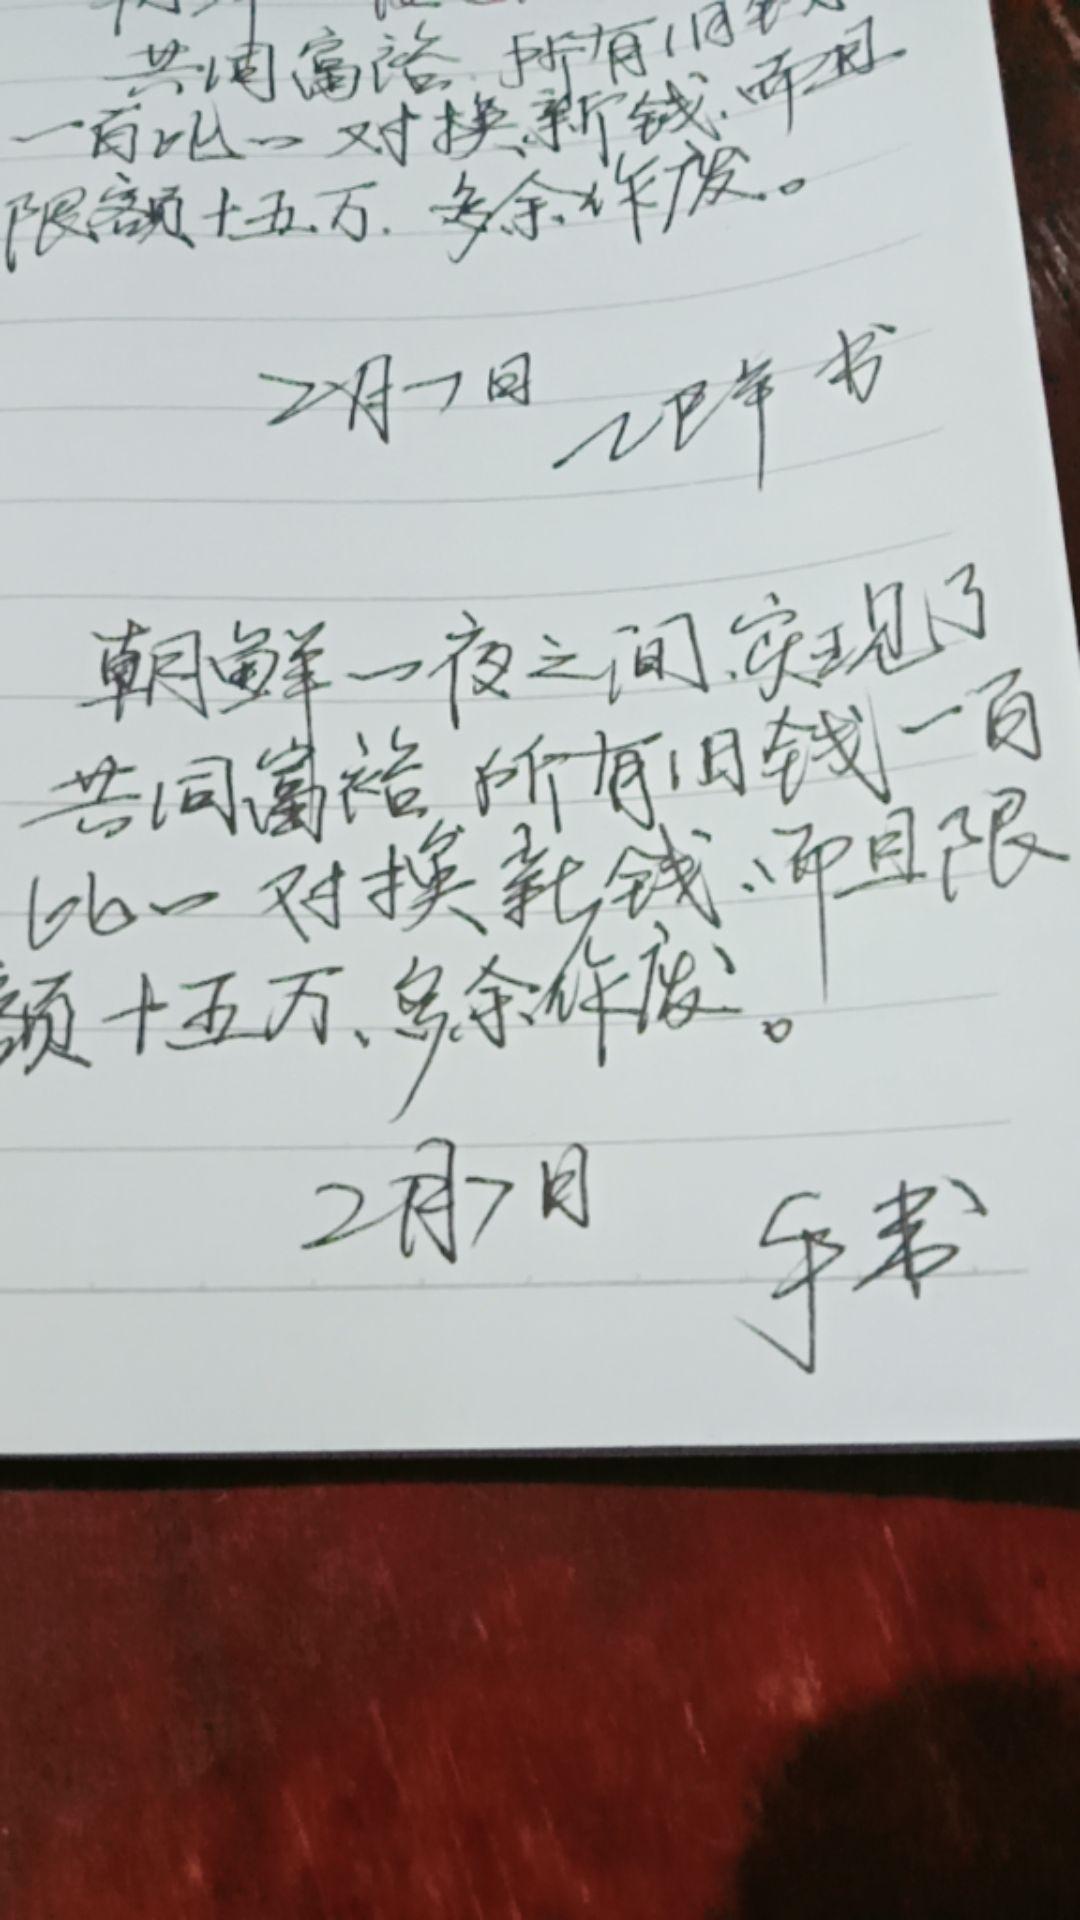 共同富裕、所有旧钱
一百比一对换新钱、而且
限额十五万、多余作废。
2月7日 乙巳年书
朝鲜一夜之间、实现了
共同富裕、所有旧钱一百
比一对换新钱、而且限
额十五万、多余作废。
2月7日 午书